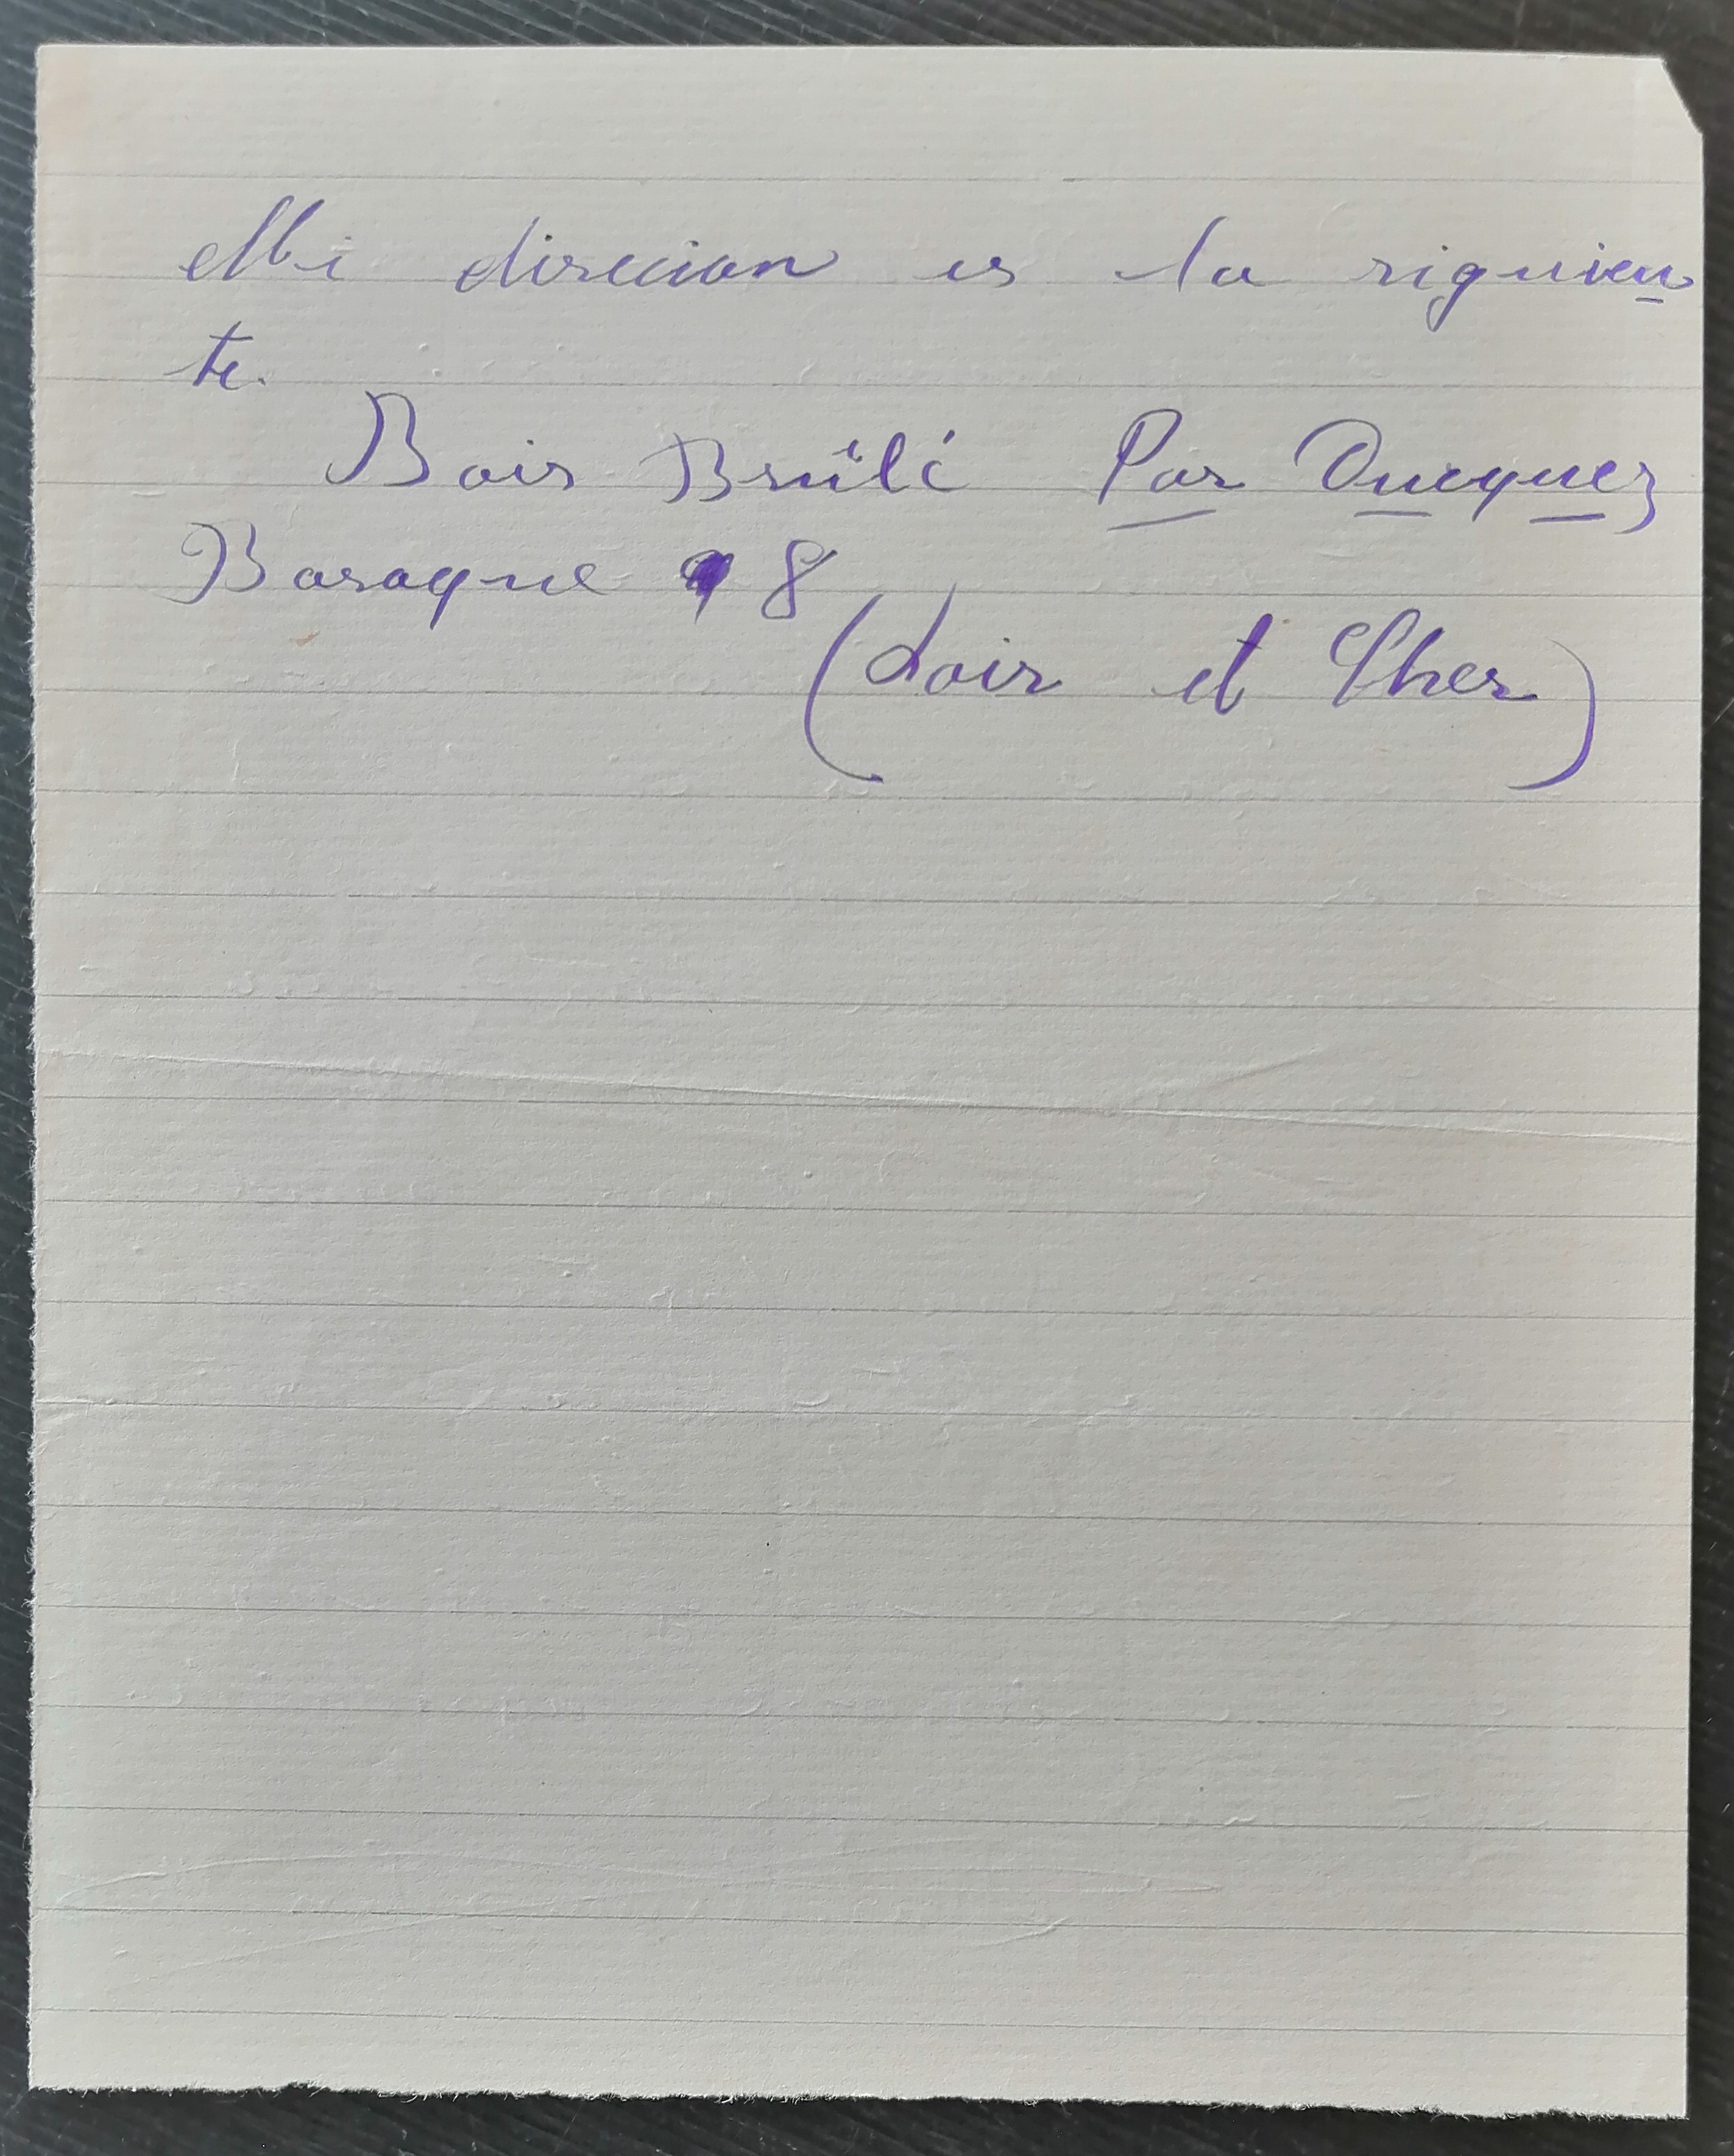 Mi direcion es la siguien
te.
Bois Brûlé Par Oucques
Baraque 8
(Loir et Cher)